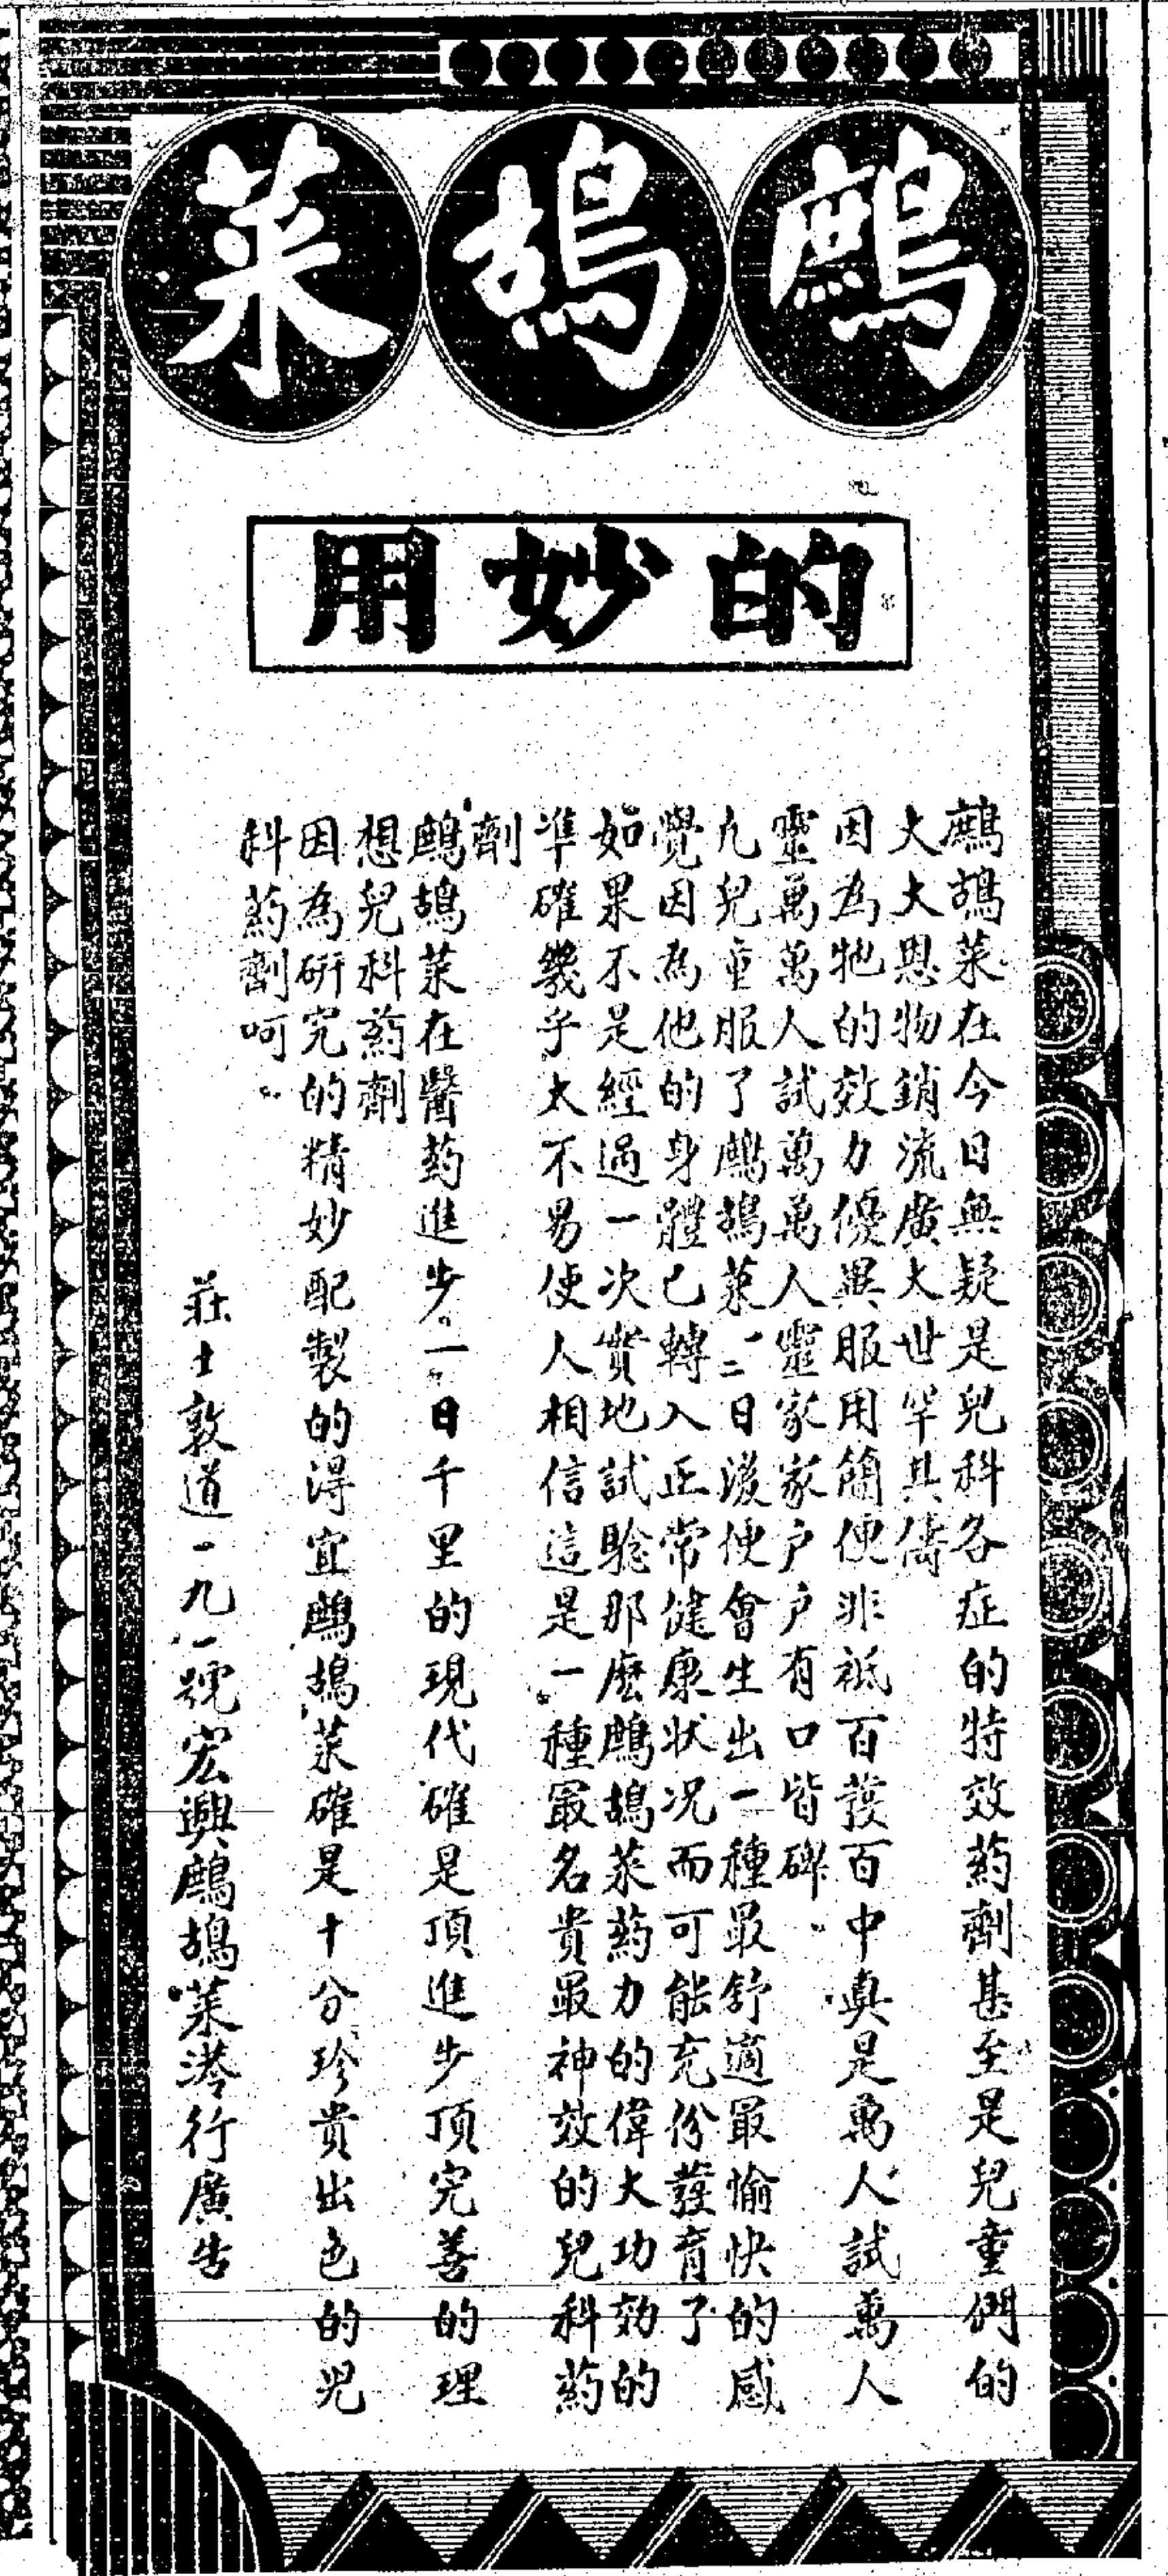 鷓鴣菜
的妙用
鷓鴣菜在今日無疑是兒科各症的特效葯劑甚至是兒童們的
大大恩物銷流廣大世罕其儔
因為牠的效力優異服用簡便非祗百發百中真是萬人試萬人
靈萬萬人試萬萬人靈家家戶戶有口皆碑
凡兒童服了鷓鴣菜一二日後便會生出一種最舒適最愉快的感
覺因為他的身體已轉入正常健康狀况而可能充份發育了
如果不是經過一次實地試驗那麽鷓鴣菜葯力的偉大功効的
準確幾乎太不易使人相信這是一種最名貴最神效的兒科葯
劑
鷓鴣菜在醫葯進步一日千里的現代確是頂進步頂完善的理
想兒科葯劑
因為研究的精妙配製的得宜鷓鴣菜確是十分珍貴出色的兒
科葯劑呵
莊士敦道一九一號宏興鷓鴣菜港行廣告